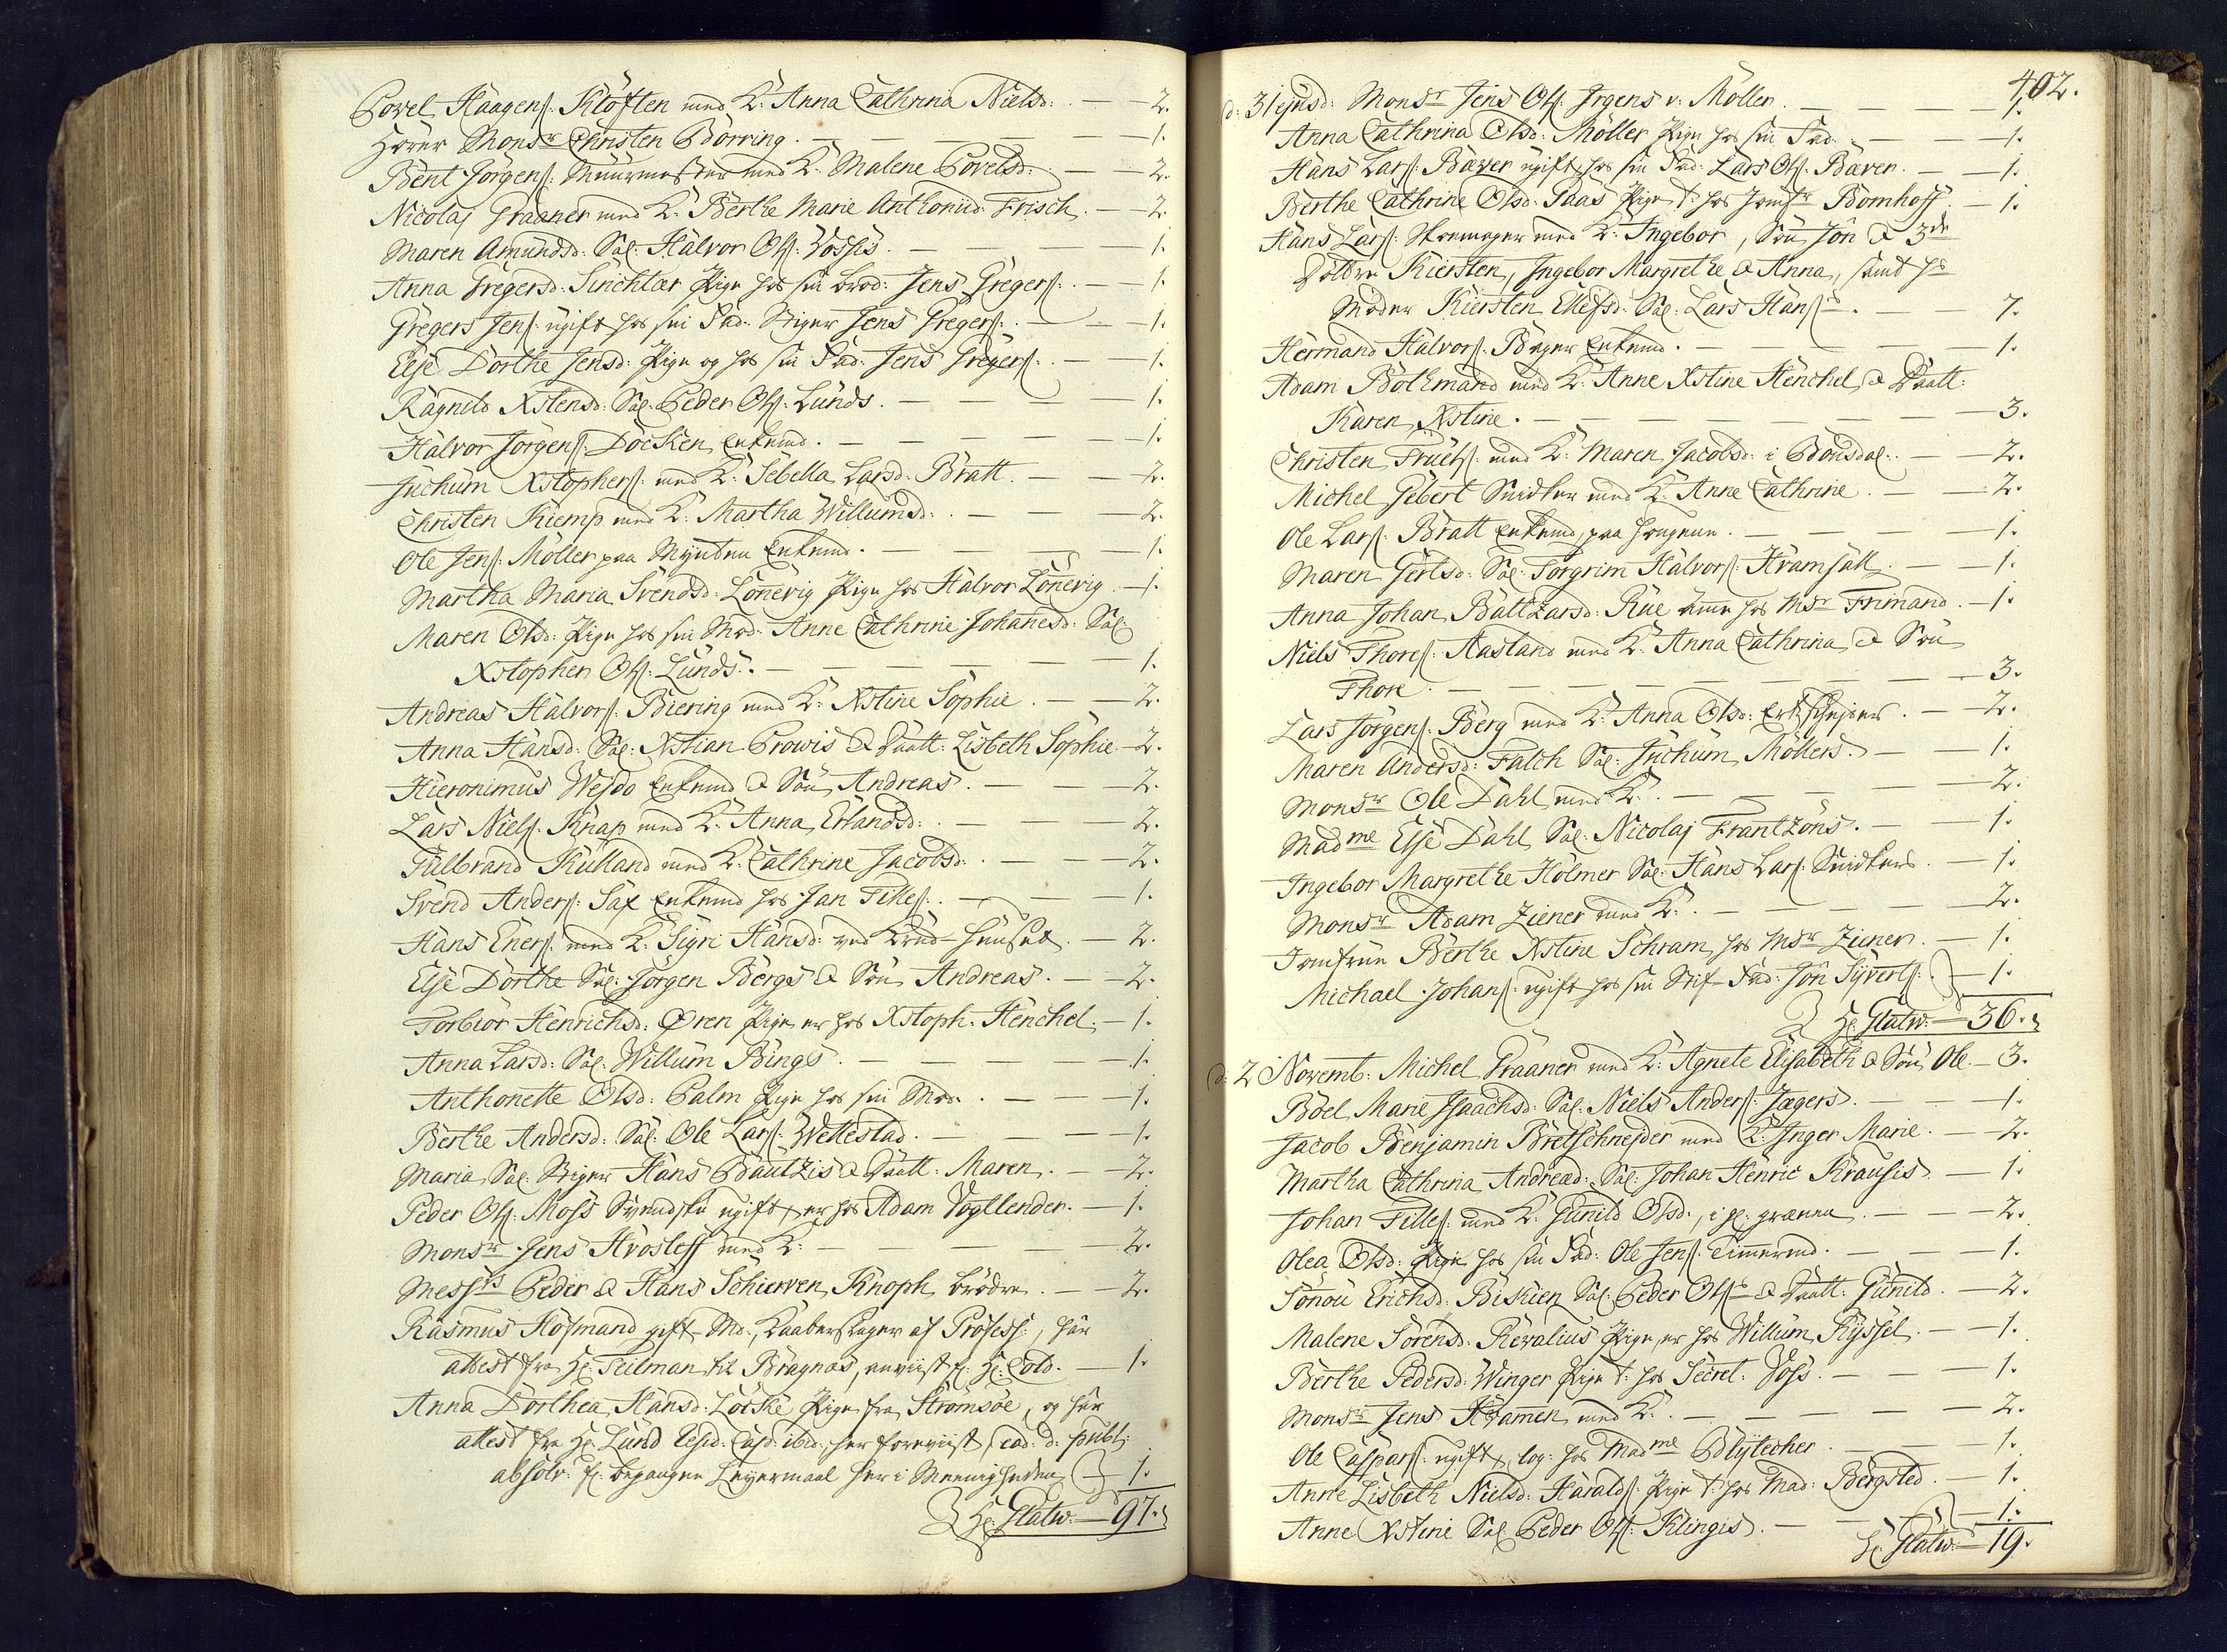 Povel Haagens: Klöften med K: Anna Cathrina Nielsd: — 2.
Hörer Monsr Christen Börring. — 1.
Bent Jörgens: Muurmester med K: Malene Povelsd: — 2.
Nicolaj Graaner med K: Berthe Marie Anthonid: Frisch. — 2.
Maren Amundsd: Sal: Halvor Ols: Vossis. — 1.
Anna Gregersd: Sinchlar Pige hos sin Brod: Jens Gregers: — 1.
Gregers Jens: ugift hos sin Fad: Stiger Jens Gregers: — 1.
Else Dorthe Jensd: Pige og hos sin Fad: Jens Gregers: — 1.
Ragnild Xstensd: Sal: Peder Ols: Lunds. — 1.
Halvor Jörgens: Docken Enkemd. — 1.
Juchum Xstophers: med K: Sebella Larsd: Bratt. — 2.
Christen Kiemp med K: Martha Willumsd: — 2.
Ole Jens: Möller paa Mynten Enkemd. — 1.
Martha Maria Svendsd: Lönevig Pige hos Halvor Lönevig — 1.
Maren Olsd: Pige hos sin Mod: Anne Cathrine Johannesd: Sal:
Xstopher Ols: Lunds. — 1.
Andreas Halvors: Biering med K: Xstine Sophie. — 2.
Anna Hansd: Sal: Xstian Prowis & Daatt: Lisbeth Sophie — 2.
Hieronimus Wejdo Enkemd & Sön Andreas. — 2.
Lars Niels: Knap med K: Anna Erlandsd: — 2.
Gulbrand Kulland med K: Cathrine Jacobsd: — 2.
Svend Anders: Sax Enkemd hos Jan Tilles: — 1.
Hans Eners: med K: Sigri Hansd: ved Krud-Huuset. — 2.
Else Dorthe Sal: Jörgen Bergs & Sön Andreas. — 2.
Torbiör Henrichsd: Øren Pige er hos Xstoph. Henchel. — 1.
Anna Larsd: Sal: Willum Bings. — 1.
Anthonette Olsd: Palm Pige hos sin Mod. — 1.
Berthe Andersd: Sal: Ole Lars: Wettestad. — 1.
Maria Sal: Stiger Hans Bautzis & Daatt: Maren. — 2.
Peder Ols: Moss Svendske ugift, er hos Adam Vogtlender. — 1.
Monsr Jens Hvosleff med K: — 2.
Messrs Peder & Hans Schierven Knoph, brödre. — 2.
Rasmus Hofmand gift-Md., Kaaberslager af Profess:, har
attest fra Hr: Teilman til Bragnæs, anviist fr: Hr: Cold. — 1.
Anna Dorthea Hansd: Löcke Pige fra Strömsöe, og har
attest fra Hr: Lund Resid: Cap: ibid: her foreviist, ead: d: publ:
absolv: fr: begangne Leyermaal her i Meenigheden — 1.
Hr: Glatw: — 97.

402.
d: 31 ejusd: Monsr Jens Ols: Irgens v: Möller. — 1.
Anna Cathrina Olsd: Möller Pige hos sin Fad. — 1.
Hans Lars: Bæver ugift hos sin Fad: Lars Ols: Bæver. — 1.
Berthe Cathrine Olsd: Gaas Pige t: hos Jomfr Bomhoff. — 1.
Hans Lars: Skomager med K: Ingebor, Sön Jon & 3de
Döttre Kiersten, Ingebor Margrethe & Anna, samt hs
Moder Kiersten Ellefsd: Sal: Lars Hans: — 7.
Hermand Halvors: Bager Enkemd. — 1.
Adam Bothmand med K: Anne Xstine Henchel & Daatt:
Karen Xstine. — 3.
Christen Truels: med K: Maren Jacobsd: i Bondsdal: — 2.
Michel Gebert Snidker med K: Anne Cathrine. — 2.
Ole Lars: Bratt Enkemd, paa Haugene. — 1.
Maren Gertsd: Sal: Torgrim Halvors: Kramsall. — 1.
Anna Johan Baltzarsd: Rue Amme hos Msr Frimand. — 1.
Niels Thores: Aasland med K: Anna Cathrina & Sön
Thore. — 3.
Lars Jörgens: Berg med K: Anna Olsd: Ertschejder. — 2.
Maren Andersd: Falch Sal: Juchum Möllers. — 1.
Monsr Ole Dahl med K: — 2.
Madme Else Dahl Sal: Nicolaj Frantzöns. — 1.
Ingebor Margrethe Holmer Sal: Hans Lars: Snidkers. — 1.
Monsr Adam Ziener med K: — 2.
Jomfrue Berthe Xstine Schram hos Msr Ziener. — 1.
Michael Johans: ugift hos sin Stif-Fad: Jon Syverts: — 1.
Hr: Glatw: — 36.
d: 2 Novemb: Michel Graaner med K: Agnete Elisabeth & Sön Ole — 3.
Boel Marie Isaachsd: Sal: Niels Anders: Jægers. — 1.
Jacob Benjamin Bretschnejder med K: Inger Marie. — 2.
Martha Cathrina Andread: Sal: Johan Henric Krausis — 1.
Johan Tilles: med K: Gunild Olsd:, i gl: grænne. — 2.
Olea Olsd: Pige hos sin Fad: Ole Jens: Timmermd. — 1.
Sönou Erichsd: Biskien Sal: Peder Ols: & Daatt: Gunild. — 2.
Malene Sörensd: Revalius Pige er hos Willum Ryssel. — 1.
Berthe Pedersd: Winger Pige t: hos Secret: Voss. — 1.
Monsr Jens Kramer med K: — 2.
Ole Caspars: ugift, log: hos Madme Blytecher. — 1.
Anne Lisbeth Nielsd: Haralds: Pige t: hos Mad: Bergsted. — 1.
Anne Xstine Sal: Peder Ols: Klingis. — 1.
Hr: Glatw: — 19.